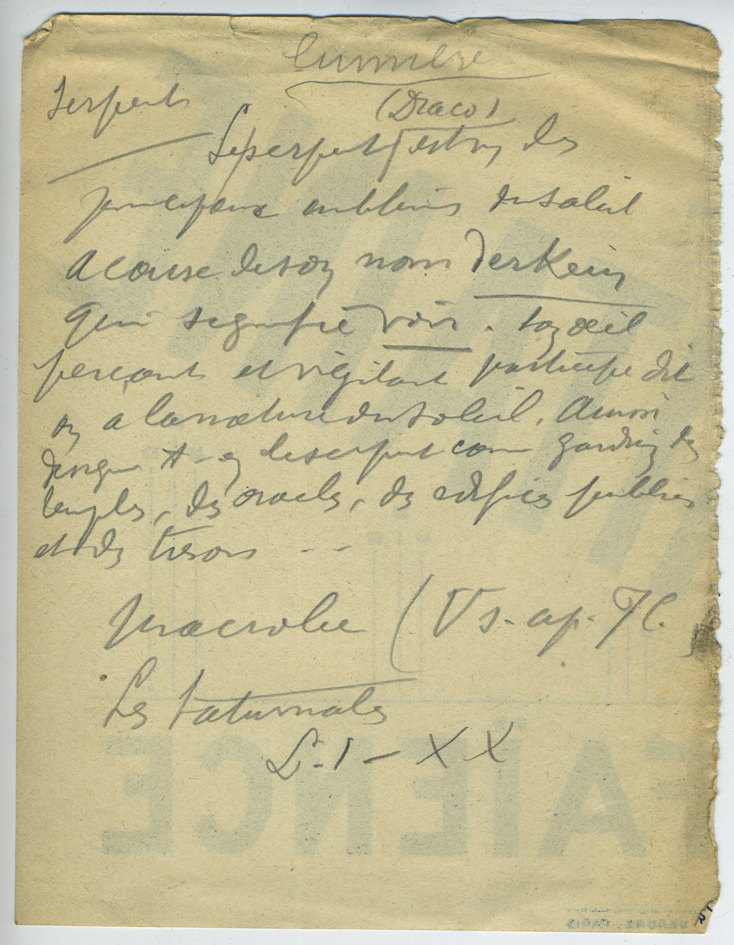 Lumière
Serpents
(Draco)
Le serpent est un des
principaux emblèmes du soleil
a cause de son nom Derkein
qui signifie voir. Son œil
perçant et vigilant participe dit
on a la nature du Soleil. Aussi
désigne t-on le serpent comme gardien des
temples, des oracles, des édifices publics
et des trésors - -
Macrobe (Vs. ap. J.C.
Les Saturnales
L. I - XX
FAÏENCE